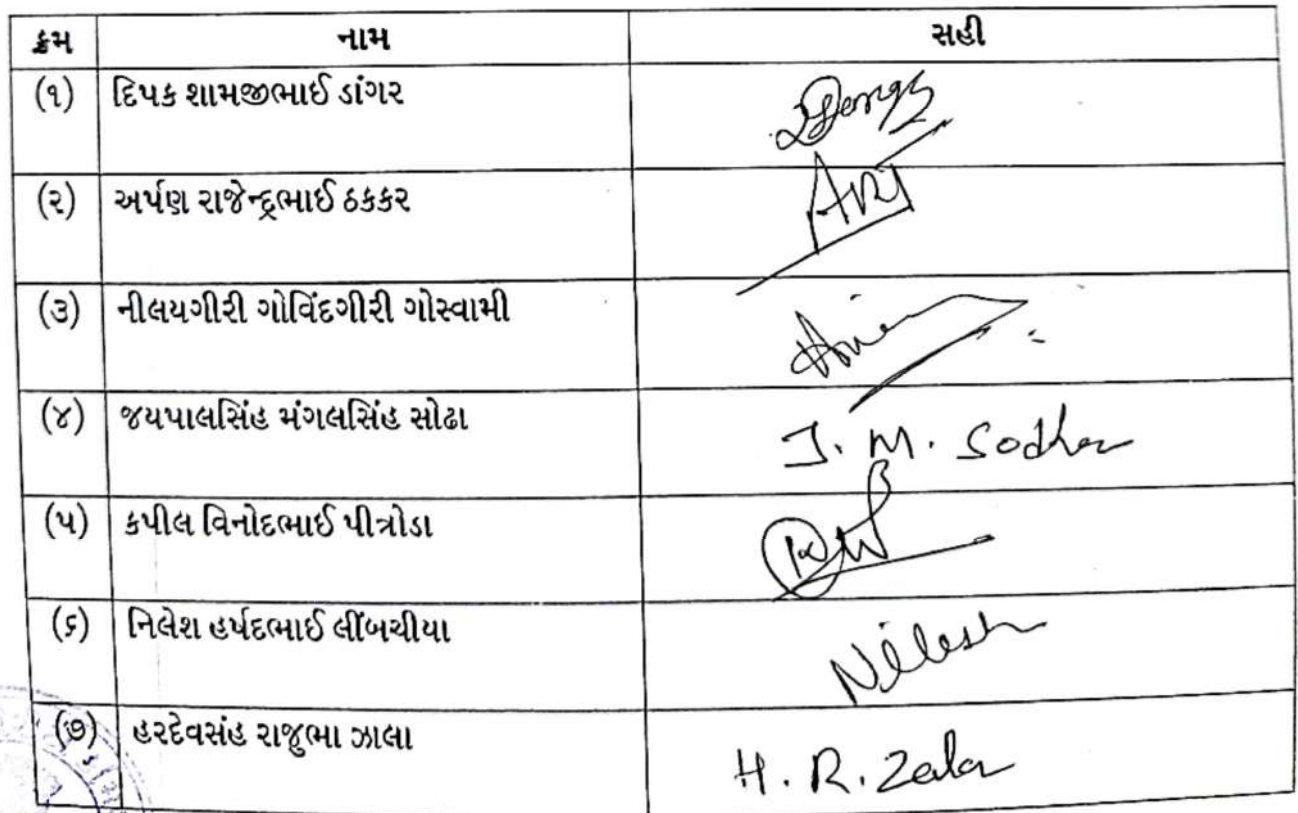 ક્રમ નામ સહી
(૧) દિપક શામજીભાઈ ડાંગર
(૨) અર્પણ રાજેન્દ્રભાઈ ઠકકર
(૩) નીલયગીરી ગોવિંદગીરી ગોસ્વામી
(૪) જયપાલસિંહ મંગલસિંહ સોઢા J. M. Sodha
(૫) કપીલ વિનોદભાઈ પીત્રોડા
(૬) નિલેશ હર્ષદભાઈ લીંબચીયા Nilesh
(૭) હરદેવસંહ રાજુભા ઝાલા H. R. Zala